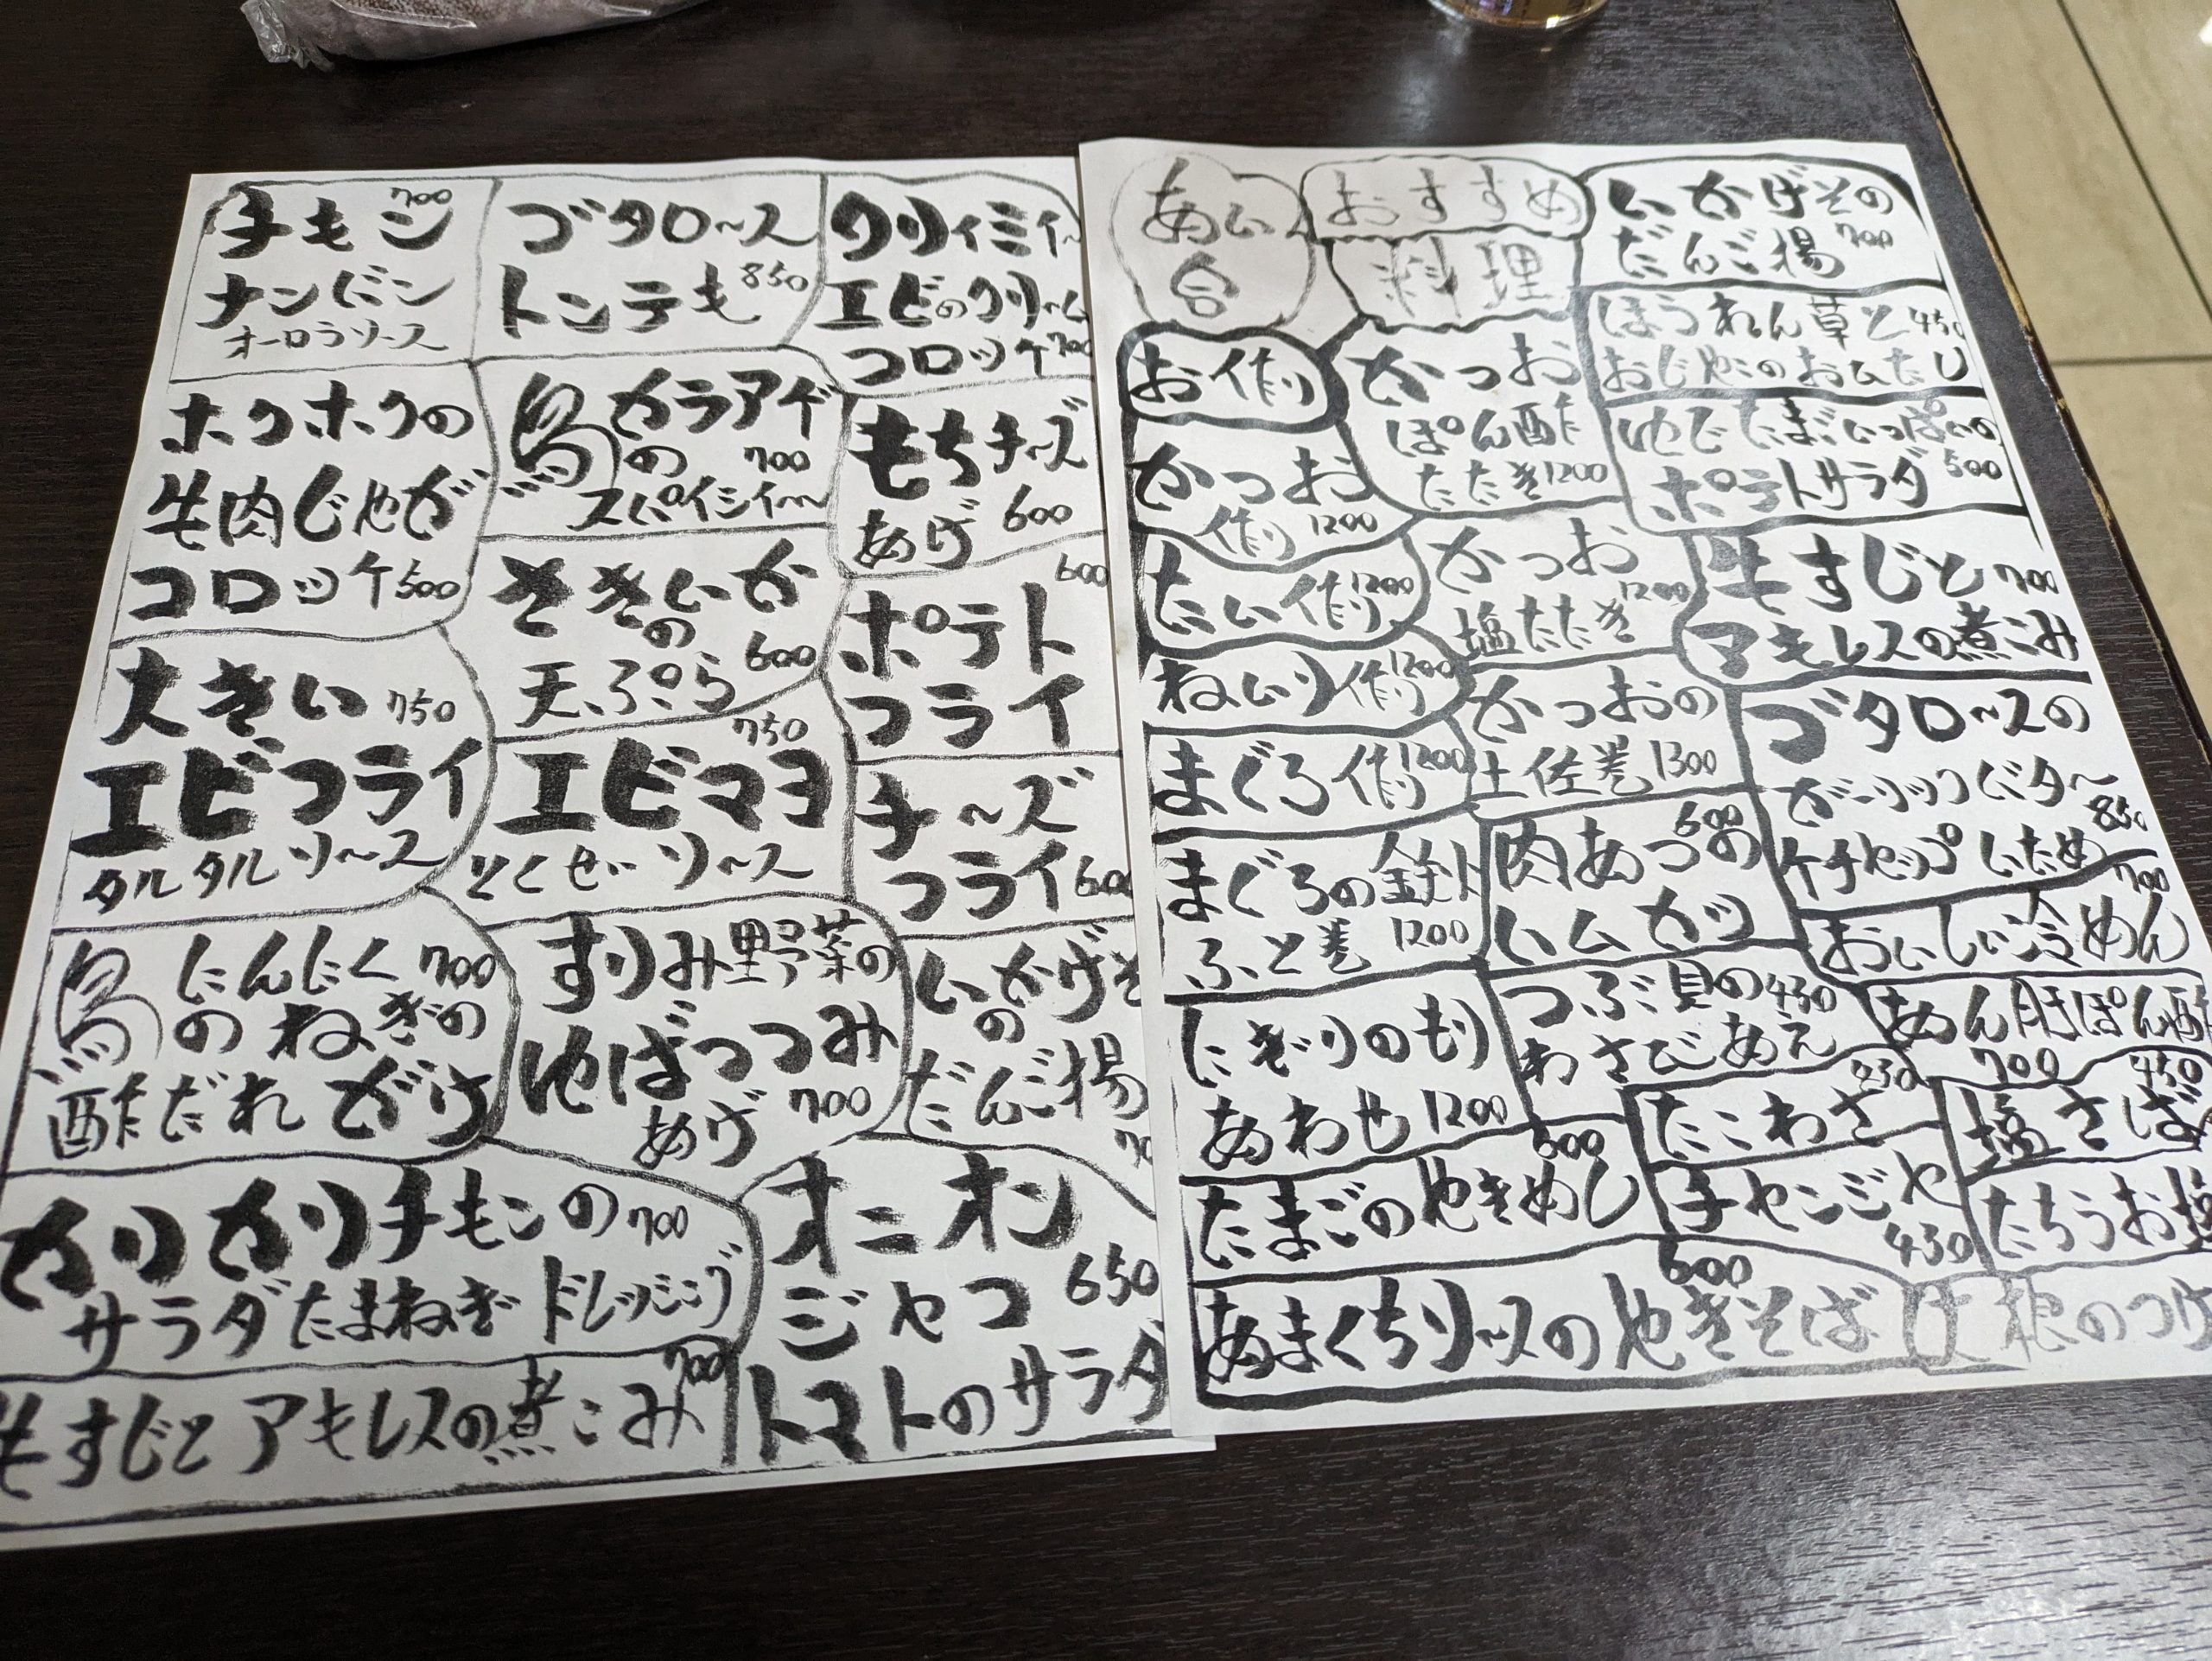 チキン 700
ナンバン
オーロラソース
ブタロース
トンテキ 850
クリィミィ〜
エビのクリーム
コロッケ 700
ホクホクの
牛肉じゃが
コロッケ 500
鳥カラアゲ
の 700
スパイシィ〜
もちチーズ
あげ 600
さきいか
の
天ぷら 600
600
ポテト
フライ
大きい 750
エビフライ
タルタルソース
750
エビマヨ
とくせいソース
チーズ
フライ 600
鳥 にんにく 700
の ねぎの
酢だれがけ
すりみ野菜の
ゆばつつみ
あげ 700
いかげそ
の
だんご揚
70
カリカリチキンの 700
サラダたまねぎドレッシング
オニオン
ジャコ 650
トマトのサラダ
牛すじとアキレスの煮こみ 700
あい
合
おすすめ
料理
いかげその
だんご揚 700
お作り
かつお
作り 1200
かつお
ぽん酢
たたき 1200
ほうれん草と 450
おじゃこのおひたし
ゆでたまごいっぱいの
ポテトサラダ 500
たい作り 1200
かつお
塩たたき 1200
牛すじと 700
アキレスの煮こみ
作り 1200
かつおの
土佐巻 1300
ブタロースの
ガーリックバター
ケチャップいため 850
まぐろ作り 1200
まぐろの鉄火
ふと巻 1200
肉あつの 600
ハムカツ
おいしい冷めん 700
にぎりのもり
あわせ 1200
つぶ貝の 430
わさびあえ
あん肝ぽん酢
700
たこわさ 430
塩さば 450
たまごのやきめし 600
チャンジャ
430
たちうお塩
あまくちソースのやきそば 600
大根のつけ